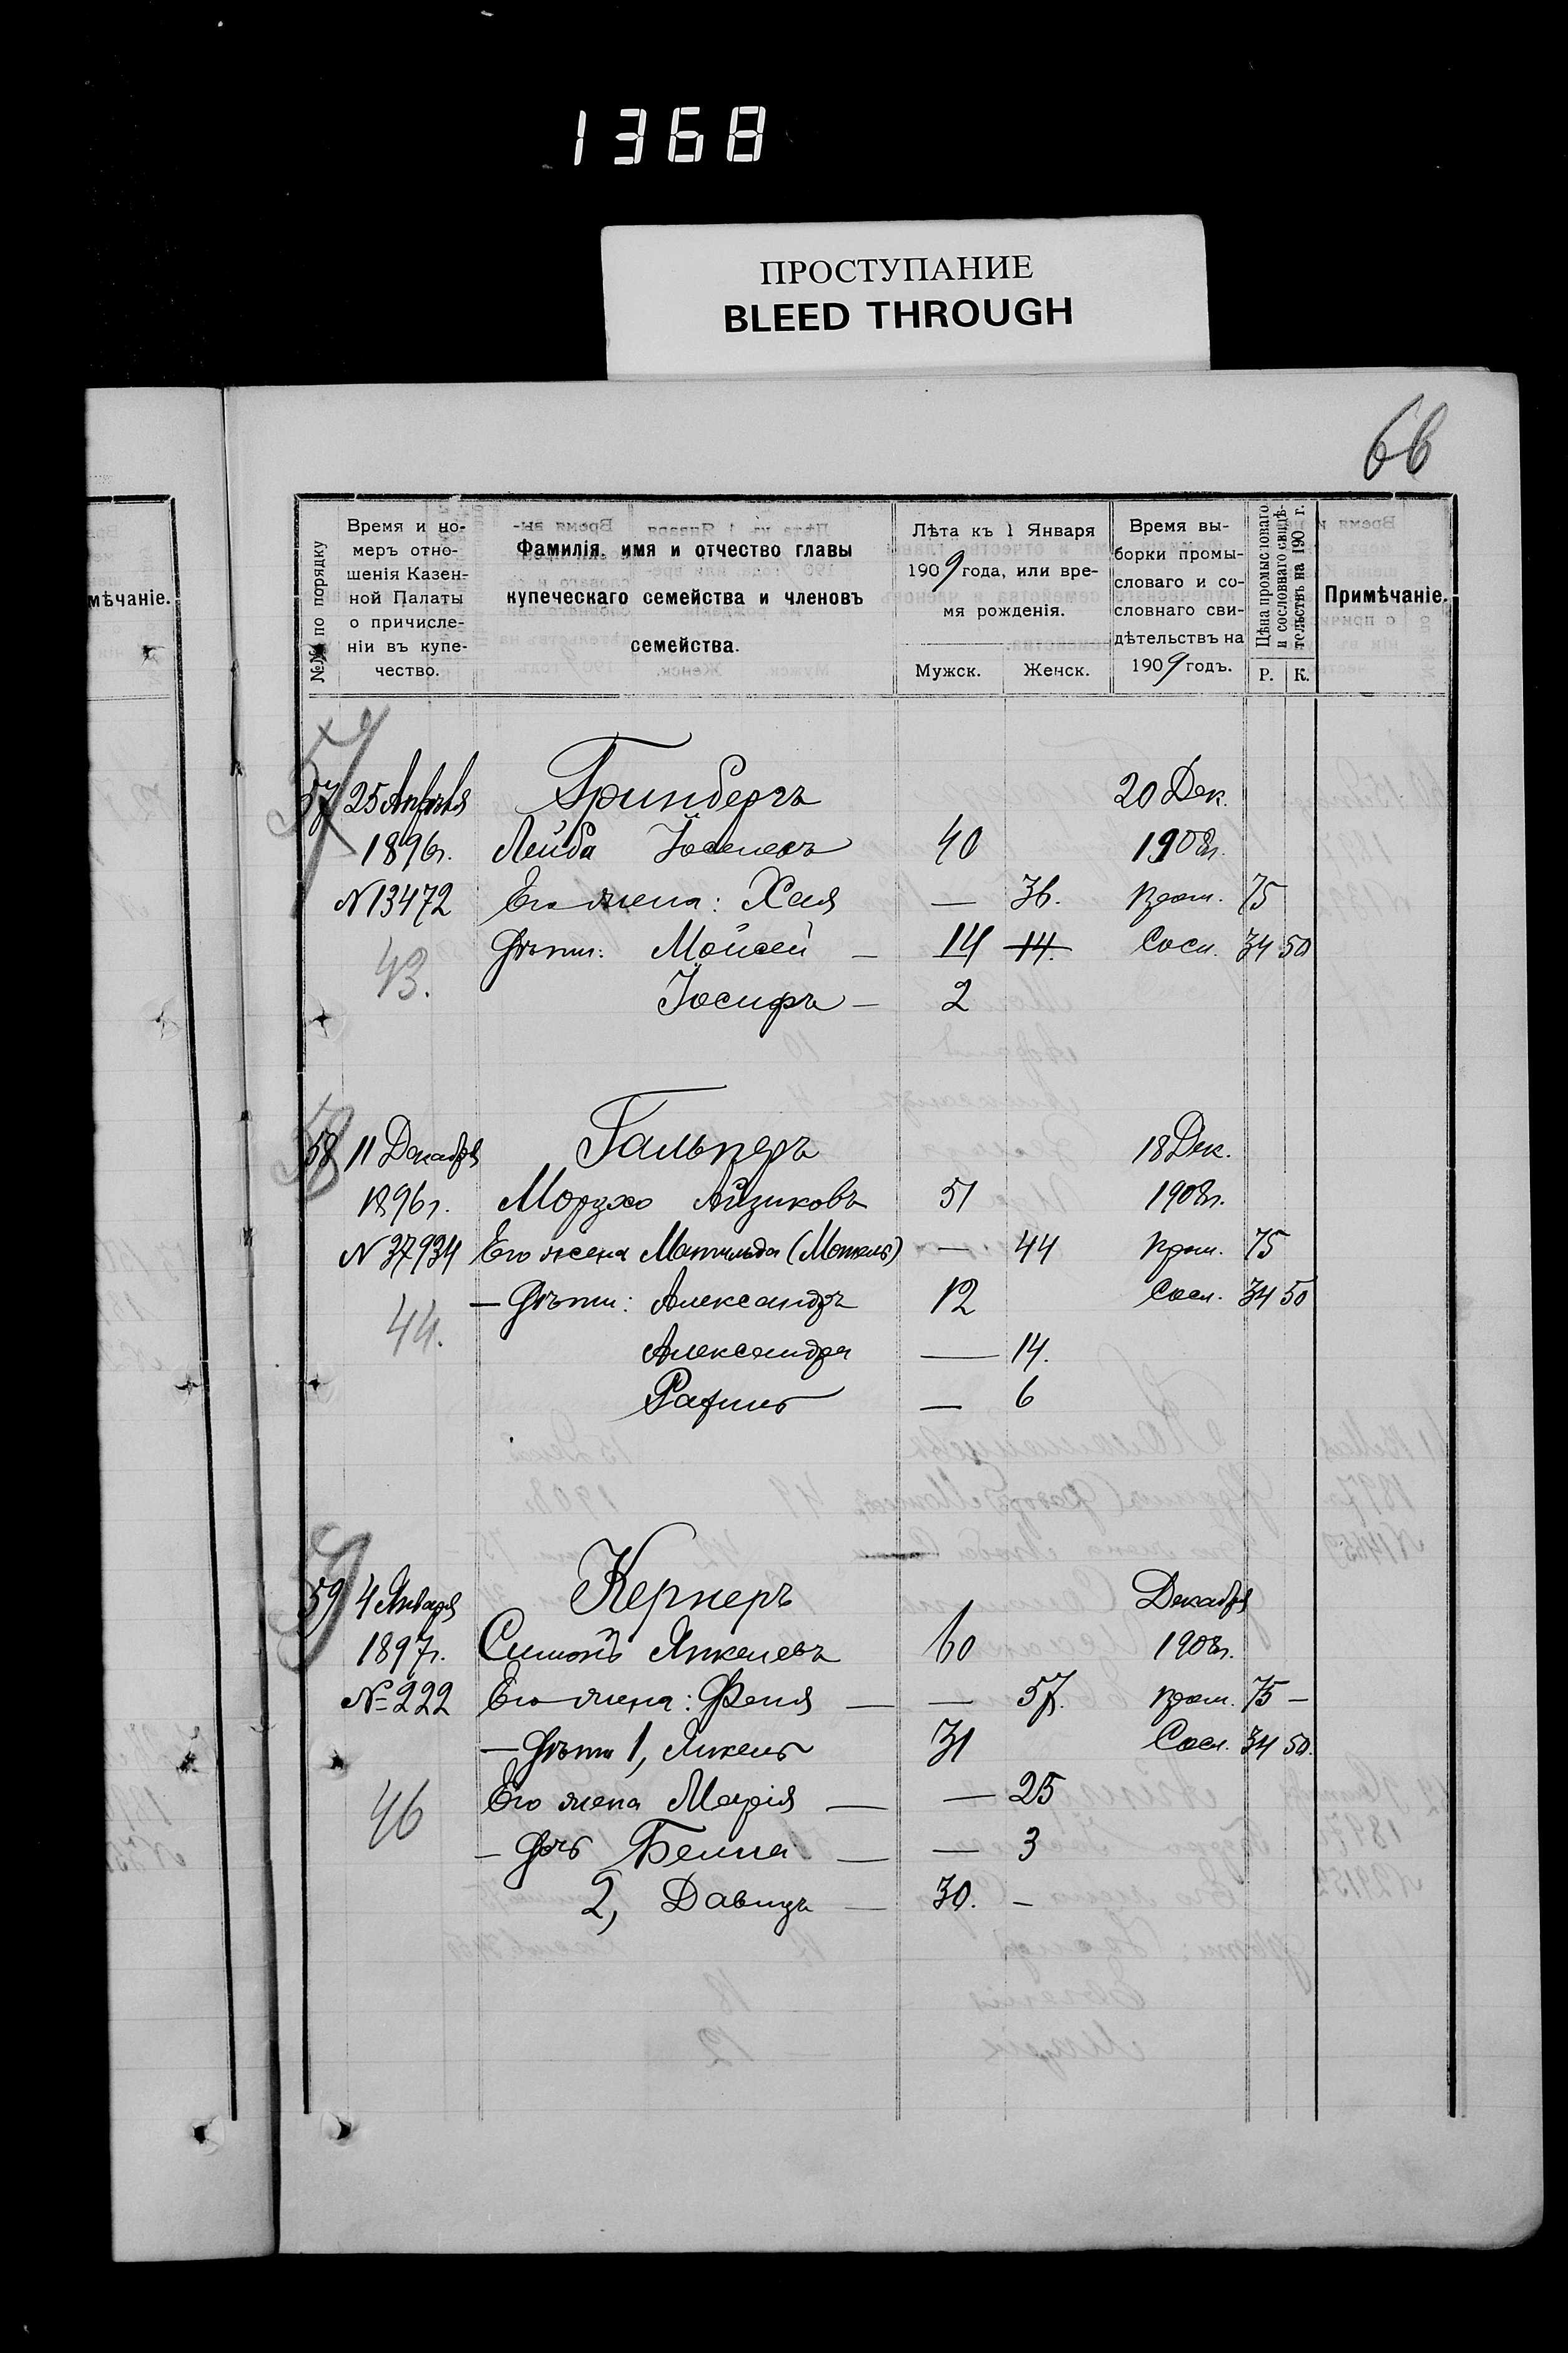 1368
ПРОСТУПАНИЕ
BLEED THROUGH
66
мѣчаніе.
№№ по порядку
Время и но-
меръ отно-
шенія Казен-
ной Палаты
о причисле-
ніи въ купе-
чество.
Фамилія, имя и отчество главы
купеческаго семейства и членовъ
семейства.
Лѣта къ 1 Января
1909 года, или вре-
мя рожденія.
Мужск. Женск.
Время вы-
борки промы-
словаго и со-
словнаго сви-
дѣтельствъ на
1909 годъ.
Цѣна промысловаго
и сословнаго свидѣ-
тельствъ на 190 г.
Р. К.
Примѣчаніе.
57 25 Апрѣля Гринбергъ 20 Дек.
1896г. Лейба Іоселевъ 40 1908г.
№ 13472 Его жена: Хая — 36. Пром. 75
43. Дѣти: Мойсей — 14 14. Сосл. 34 50
Іосифъ — 2
58 11 Декабря Гальперъ 18 Дек.
1896г. Мордхо Айзиковъ 51 1908г.
№ 37934 Его жена Матильда — 44 Пром. 75
44. — Дѣти: Александръ 12 Сосл. 34 50
Александра — 14.
Рахиль — 6
59 4 Января Кернеръ Декабря
1897г. Симонъ Янкелевъ 60 1908г.
№ 222 Его жена: Феня — — 57. Пром. 75 —
— Дѣти 1, Янкель 31 Сосл. 34 50.
46 Его жена Марія — — 25
— Дочь Белла — — 3
2, Давидъ — 30. —